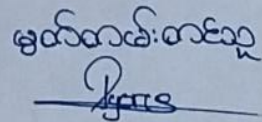 မှတ်တမ်းတင်သူ